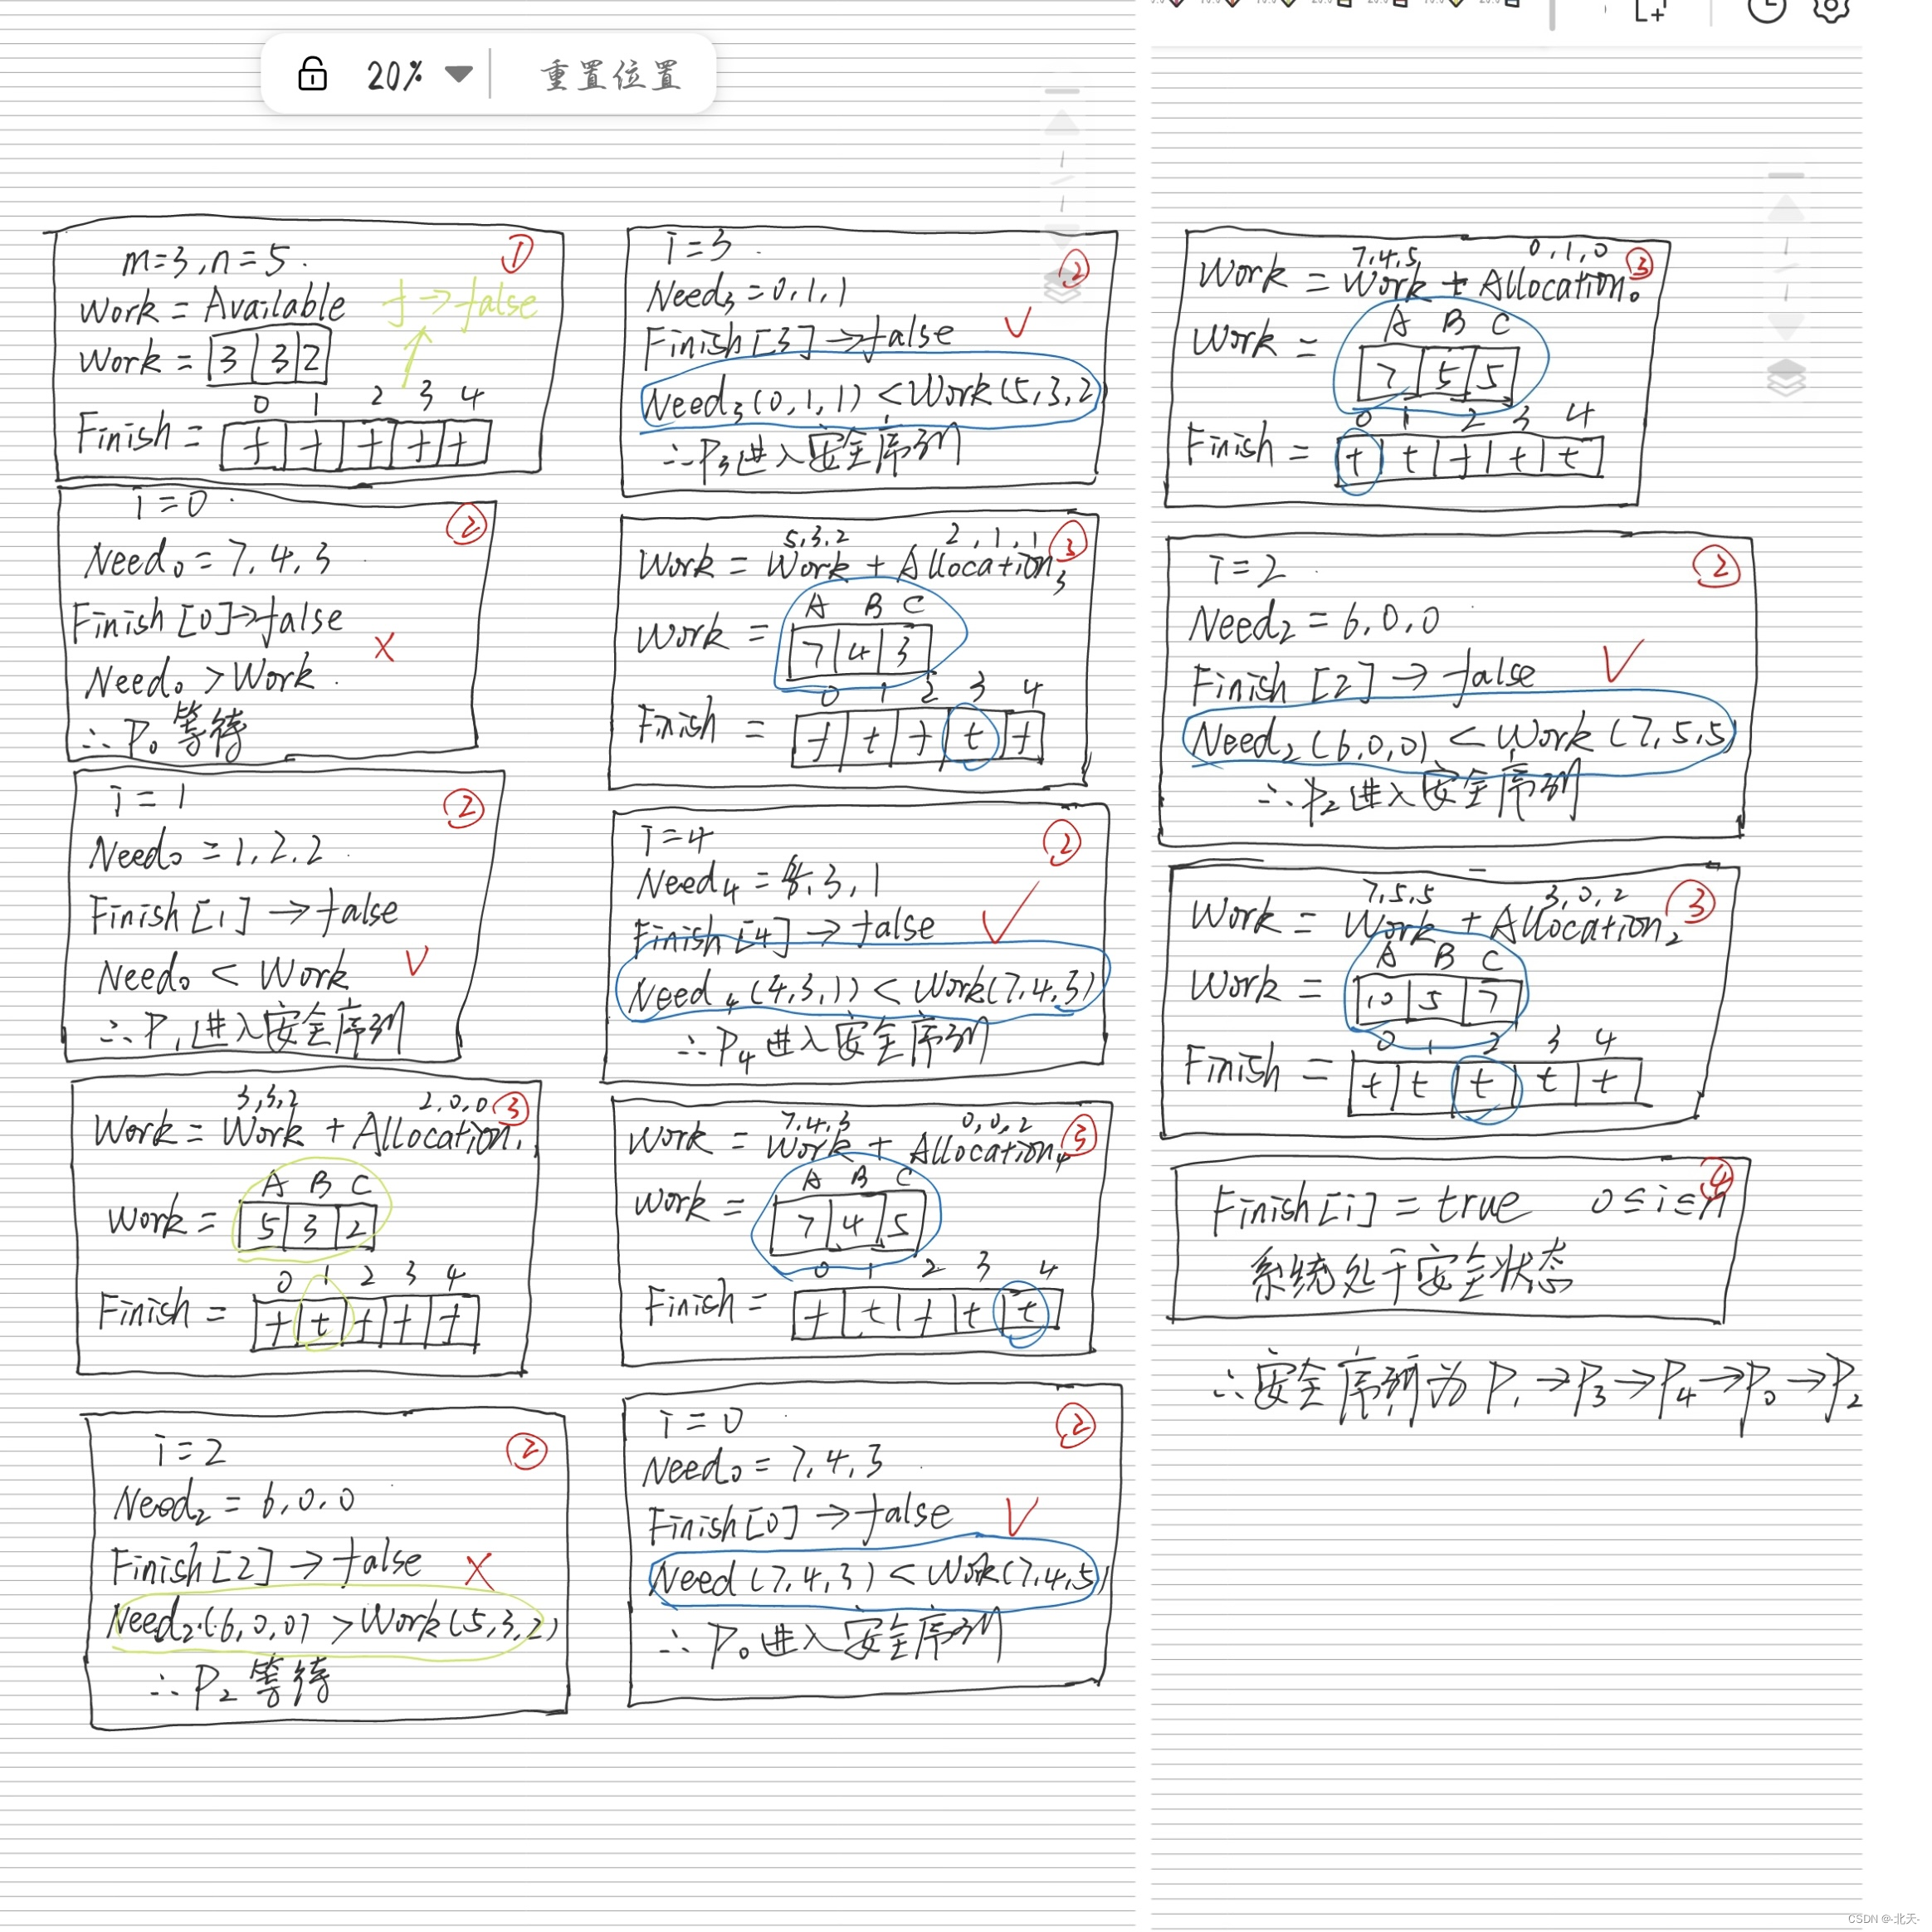 20% 重置位置
m=3, n=5. ①
Work = Available f→false
Work = 3 3 2
0 1 2 3 4
Finish = f f f f f
i=0 ②
Need₀ = 7, 4, 3
Finish [0]→false
Need₀ > Work ×
∴P₀等待
i=1 ②
Need₀ = 1, 2, 2
Finish [1] → false
Need₀ < Work √
∴P₁进入安全序列
3,3,2 2,0,0 ③
Work = Work + Allocation₁
A B C
Work = 5 3 2
0 1 2 3 4
Finish = f t f f f
i=2 ②
Need₂ = 6, 0, 0
Finish [2] → false ×
Need₂ (6,0,0) > Work (5,3,2)
∴P₂等待
i=3 ②
Need₃ = 0, 1, 1
Finish [3] → false √
Need₃ (0,1,1) < Work (5,3,2
∴P₃进入安全序列
5,3,2 2,1,1 ③
Work = Work + Allocation₃
A B C
Work = 7 4 3
0 1 2 3 4
Finish = f t f t f
i=4 ②
Need₄ = 4, 3, 1
Finish [4] → false √
Need₄ (4,3,1) < Work (7,4,3)
∴P₄进入安全序列
7,4,3 0,0,2 ③
Work = Work + Allocation₄
A B C
Work = 7 4 5
0 1 2 3 4
Finish = f t f t t
i=0 ②
Need₀ = 7, 4, 3
Finish [0] → false √
Need (7,4,3) < Work (7,4,5)
∴P₀进入安全序列
7,4,5 0,1,0 ③
Work = Work + Allocation₀
A B C
Work = 7 5 5
0 1 2 3 4
Finish = t t f t t
i=2 ②
Need₂ = 6, 0, 0
Finish [2] → false √
Need₂ (6,0,0) < Work (7,5,5)
∴P₂进入安全序列
7,5,5 3,0,2 ③
Work = Work + Allocation₂
A B C
Work = 10 5 7
0 1 2 3 4
Finish = t t t t t
④
Finish [i] = true 0≤i≤n
系统处于安全状态
∴安全序列为 P₁→P₃→P₄→P₀→P₂
CSDN @-北天-